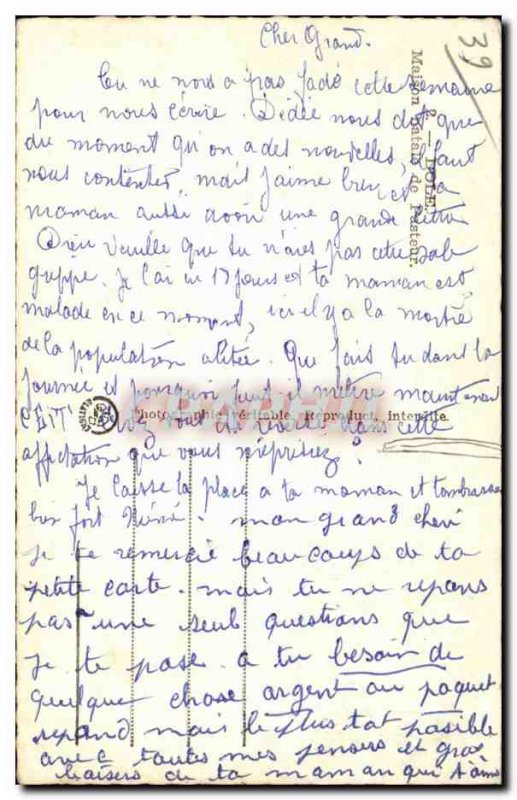 39
Cher Grand.
On ne nous a pas gâté cette semaine
pour nous écrire. Dédée nous dit que
du moment qu'on a des nouvelles, il faut
nous contenter, mais j'aime bien et ta
maman aussi avoir une grande lettre
Dieu veuille que tu n'aies pas cette sale
grippe. Je l'ai eu 17 jours et ta maman est
malade en ce moment, ici il y a la moitié
de la population alitée. Que fais tu dans la
journée et pourquoi faut il mettre maintenant
vous
affectation que vous méprisiez ?
Je laisse la place a ta maman et t'embrasse
bien fort mon grand cheri
je te remercie beaucoups de ta
petite carte. mais tu ne repons
pas une seul questions que
je te pose. a tu besoin de
quelque chose argent ou paquet
repond mais le plus tot posible
avec toutes mes pensers et gros
baisers de ta maman qui t'aime
2. — DOLE.
Maison natale de Pasteur.
Photographie véritable. Reproduct. interdite.